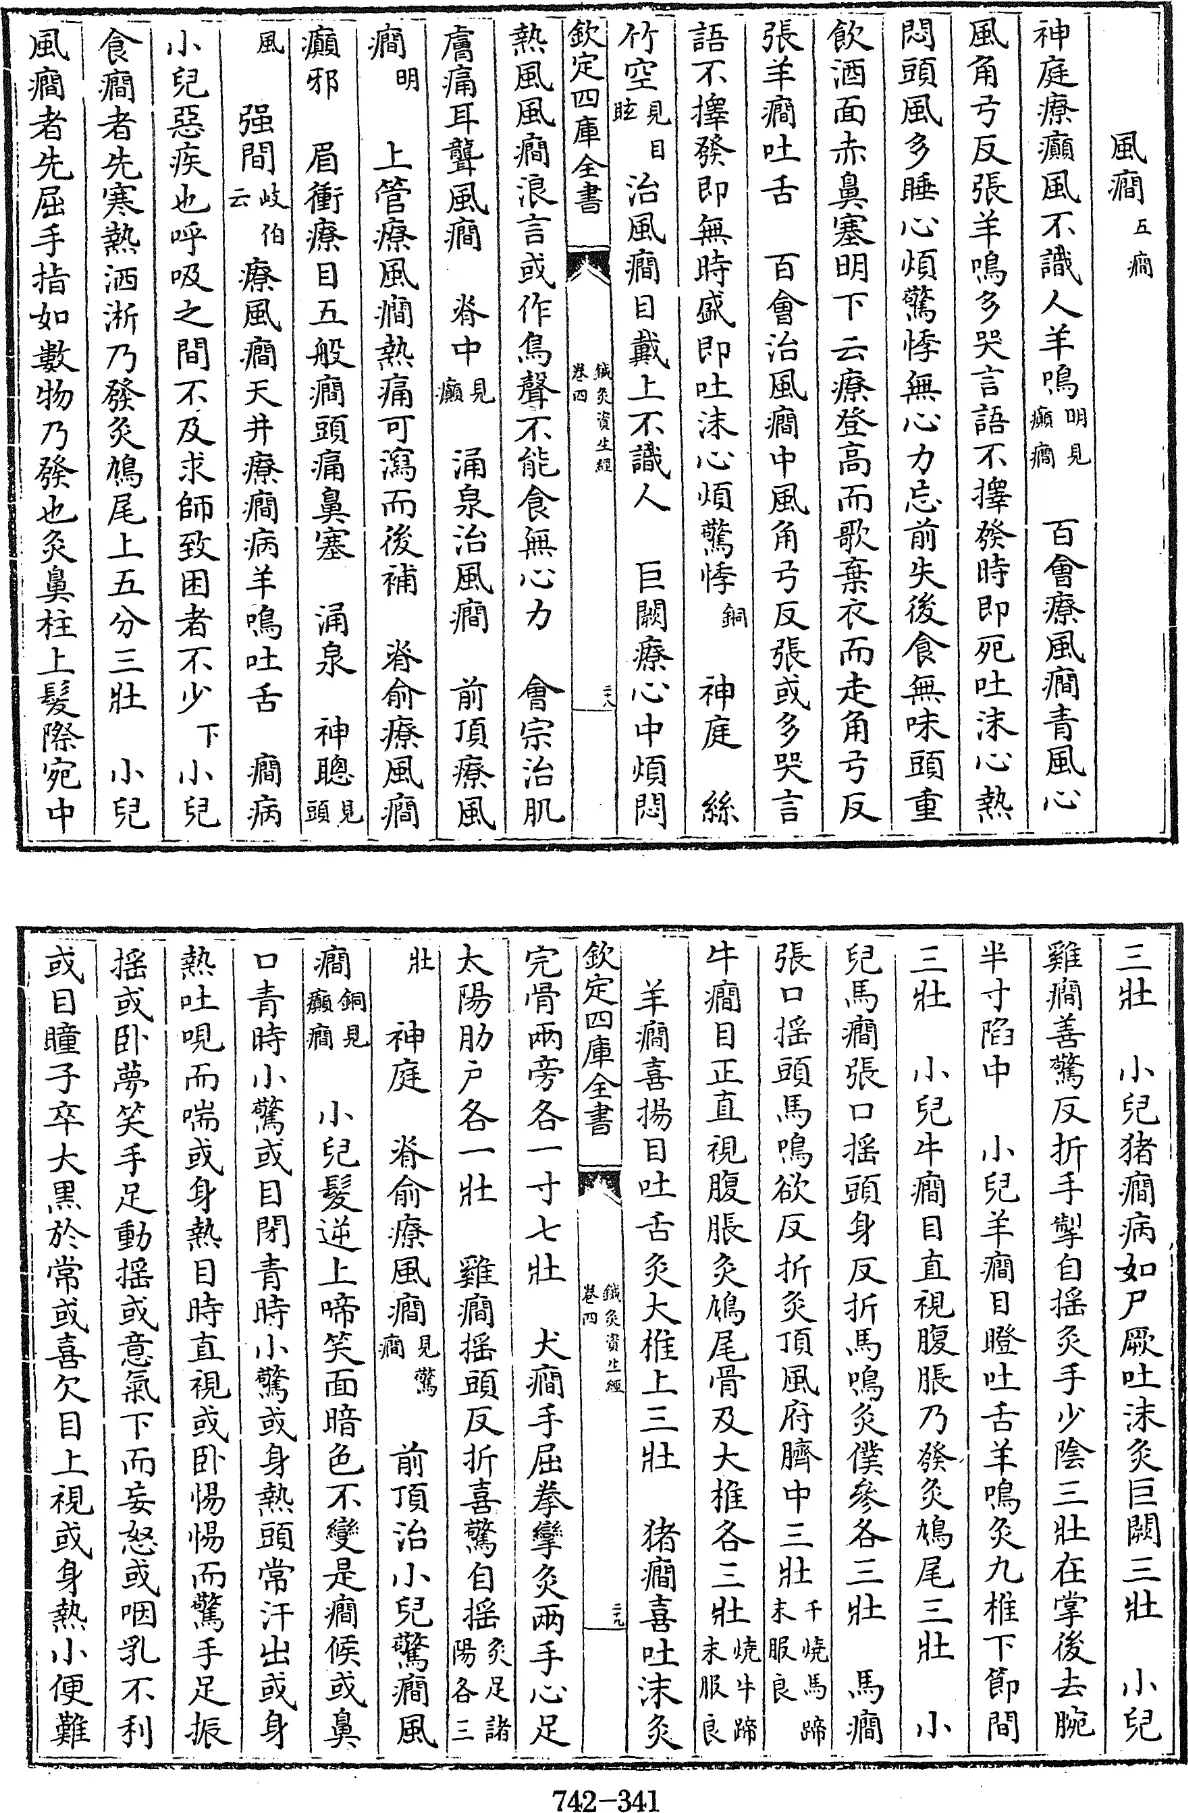 風癎五癎
神庭療癲風不識人羊鳴明見癲癎 百會療風癎青風心
風角弓反張羊鳴多哭言語不擇發時即死吐沫心熱
悶頭風多睡心煩驚悸無心力忘前失後食無味頭重
飲酒面赤鼻塞明下云療登高而歌棄衣而走角弓反
張羊癎吐舌 百會治風癎中風角弓反張或多哭言
語不擇發即無時盛即吐沫心煩驚悸銅 神庭 絲
竹空見目眩治風癎目戴上不識人 巨闕療心中煩悶
欽定四庫全書 鍼灸資生經 卷四 二八
熱風風癎浪言或作鳥聲不能食無心力 會宗治肌
膚痛耳聾風癎 脊中見癲 涌泉治風癎 前頂療風
癎明 上管療風癎熱痛可瀉而後補 脊俞療風癎
癲邪 眉衝療目五般癎頭痛鼻塞 涌泉 神聰見頭
風 强間岐伯云療風癎天井療癎病羊鳴吐舌 癎病
小兒惡疾也呼吸之間不及求師致困者不少下 小兒
食癎者先寒熱洒淅乃發灸鳩尾上五分三壯 小兒
風癎者先屈手指如數物乃發也灸鼻柱上髮際宛中
三壯 小兒猪癎病如尸厥吐沫灸巨闕三壯 小兒
雞癎善驚反折手掣自揺灸手少陰三壯在掌後去腕
半寸陷中 小兒羊癎目瞪吐舌羊鳴灸九椎下節間
三壯 小兒牛癎目直視腹脹乃發灸鳩尾三壯 小
兒馬癎張口揺頭身反折馬鳴灸僕參各三壯 馬癎
張口揺頭馬鳴欲反折灸頂風府臍中三壯千燒馬蹄末服良
牛癎目正直視腹脹灸鳩尾骨及大椎各三壯燒牛蹄末服良
羊癎喜揚目吐舌灸大椎上三壯 猪癎喜吐沫灸
欽定四庫全書 鍼灸資生經 卷四 二九
完骨兩旁各一寸七壯 犬癎手屈拳攣灸兩手心足
太陽肋户各一壯 雞癎揺頭反折喜驚自揺灸足諸陽各三
壯 神庭 脊俞療風癎見驚癎 前頂治小兒驚癎風
癎銅見癲癎 小兒髮逆上啼笑面暗色不變是癎候或鼻
口青時小驚或目閉青時小驚或身熱頭常汗出或身
熱吐哯而喘或身熱目時直視或卧惕惕而驚手足振
揺或卧夢笑手足動揺或意氣下而妄怒或咽乳不利
或目瞳子卒大黒於常或喜欠目上視或身熱小便難
742-341